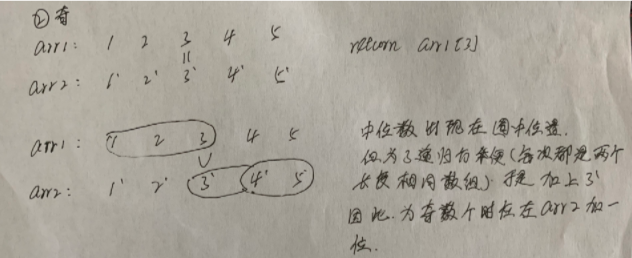 ② 奇
arr1: 1 2 3 4 5 return arr1[3]
||
arr2: 1' 2' 3' 4' 5'
arr1: 1 2 3 4 5 中位数出现在圈中位置.
∨ 但为了递归方便(每次都是两个
arr2: 1' 2' 3' 4' 5' 长度相同数组) 于是加上3'
因此. 为奇数个时应在arr2加一
位.